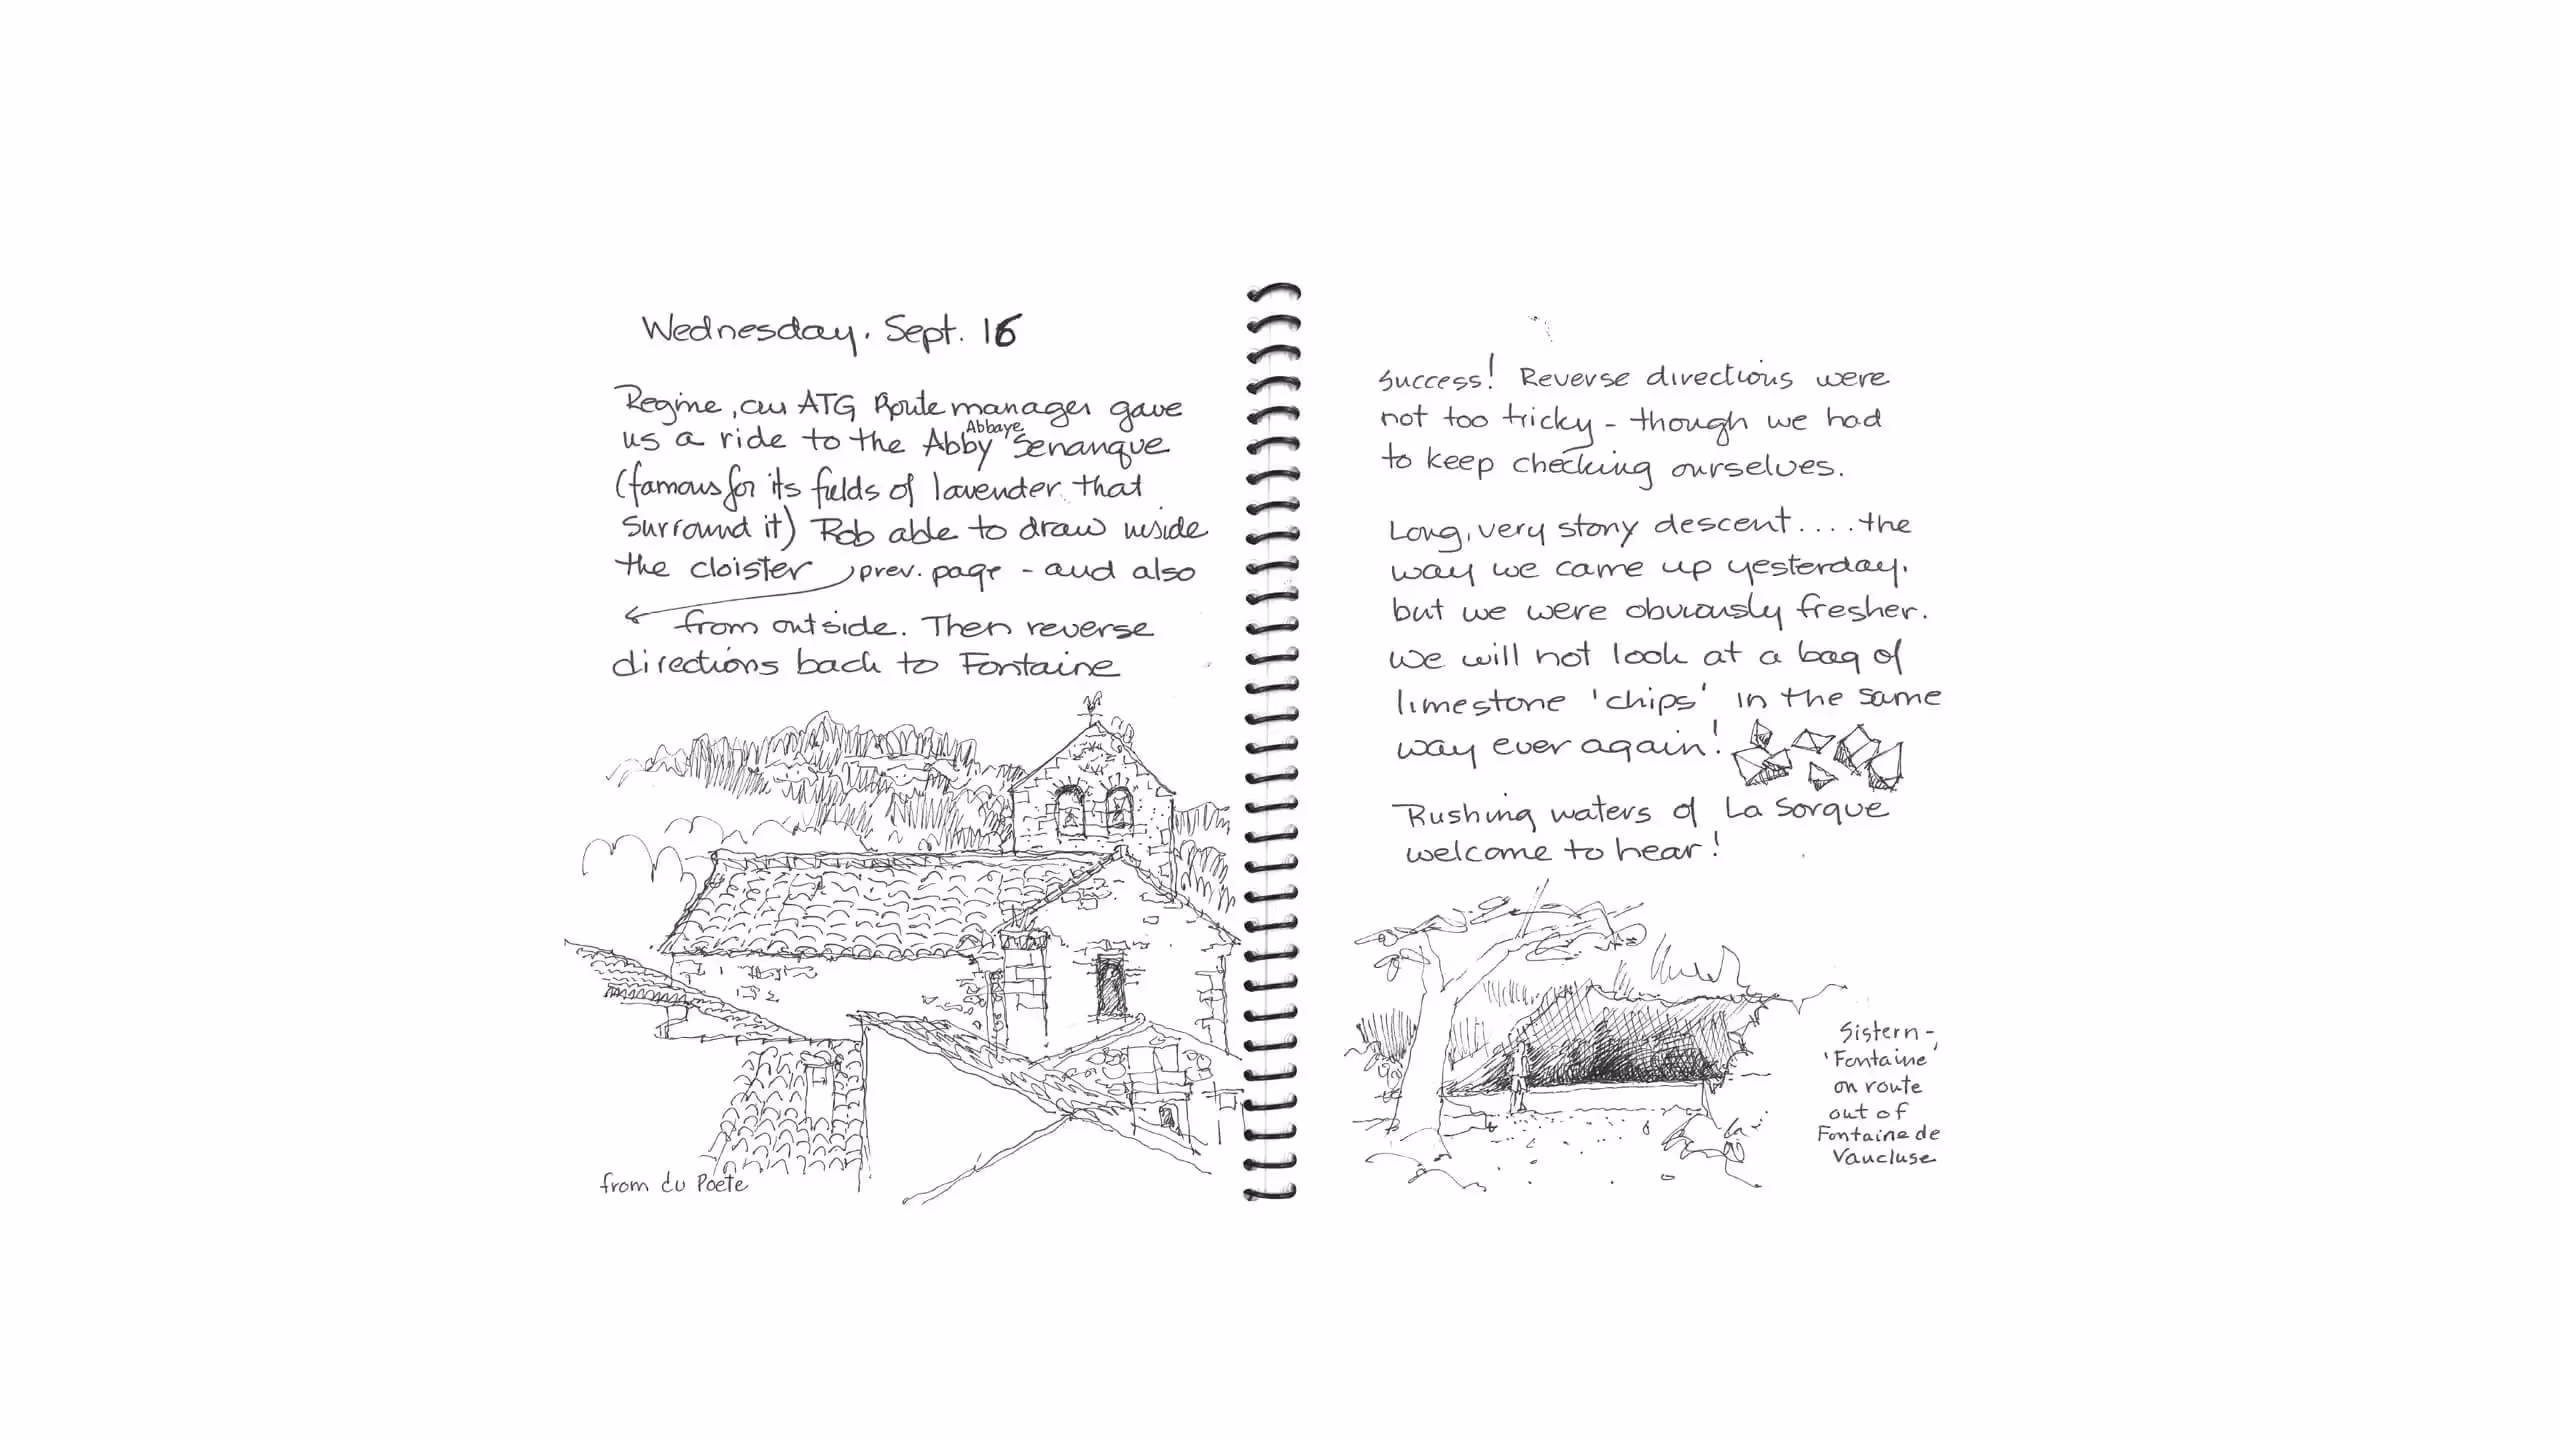 Wednesday. Sept. 16
Regine, an ATG Route manager gave
us a ride to the Abby Abbaye Senanque
(famous for its fields of lavender that
surround it) Rob able to draw inside
the cloister prev. page - and also
from outside. Then reverse
directions back to Fontaine
from du Poete
Success! Reverse directions were
not too tricky - though we had
to keep checking ourselves.
Long, very stony descent....the
way we came up yesterday.
but we were obviously fresher.
We will not look at a bag of
limestone 'chips' in the same
way ever again!
Rushing waters of La Sorque
welcome to hear!
Sistern-
'Fontaine'
on route
out of
Fontaine de
Vaucluse